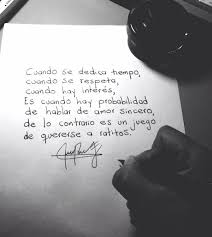 Cuando se dedica tiempo,
cuando se respeta,
cuando hay interés,
Es cuando hay probabilidad
de hablar de amor sincero,
de lo contrario es un juego
de quererse a ratitos.